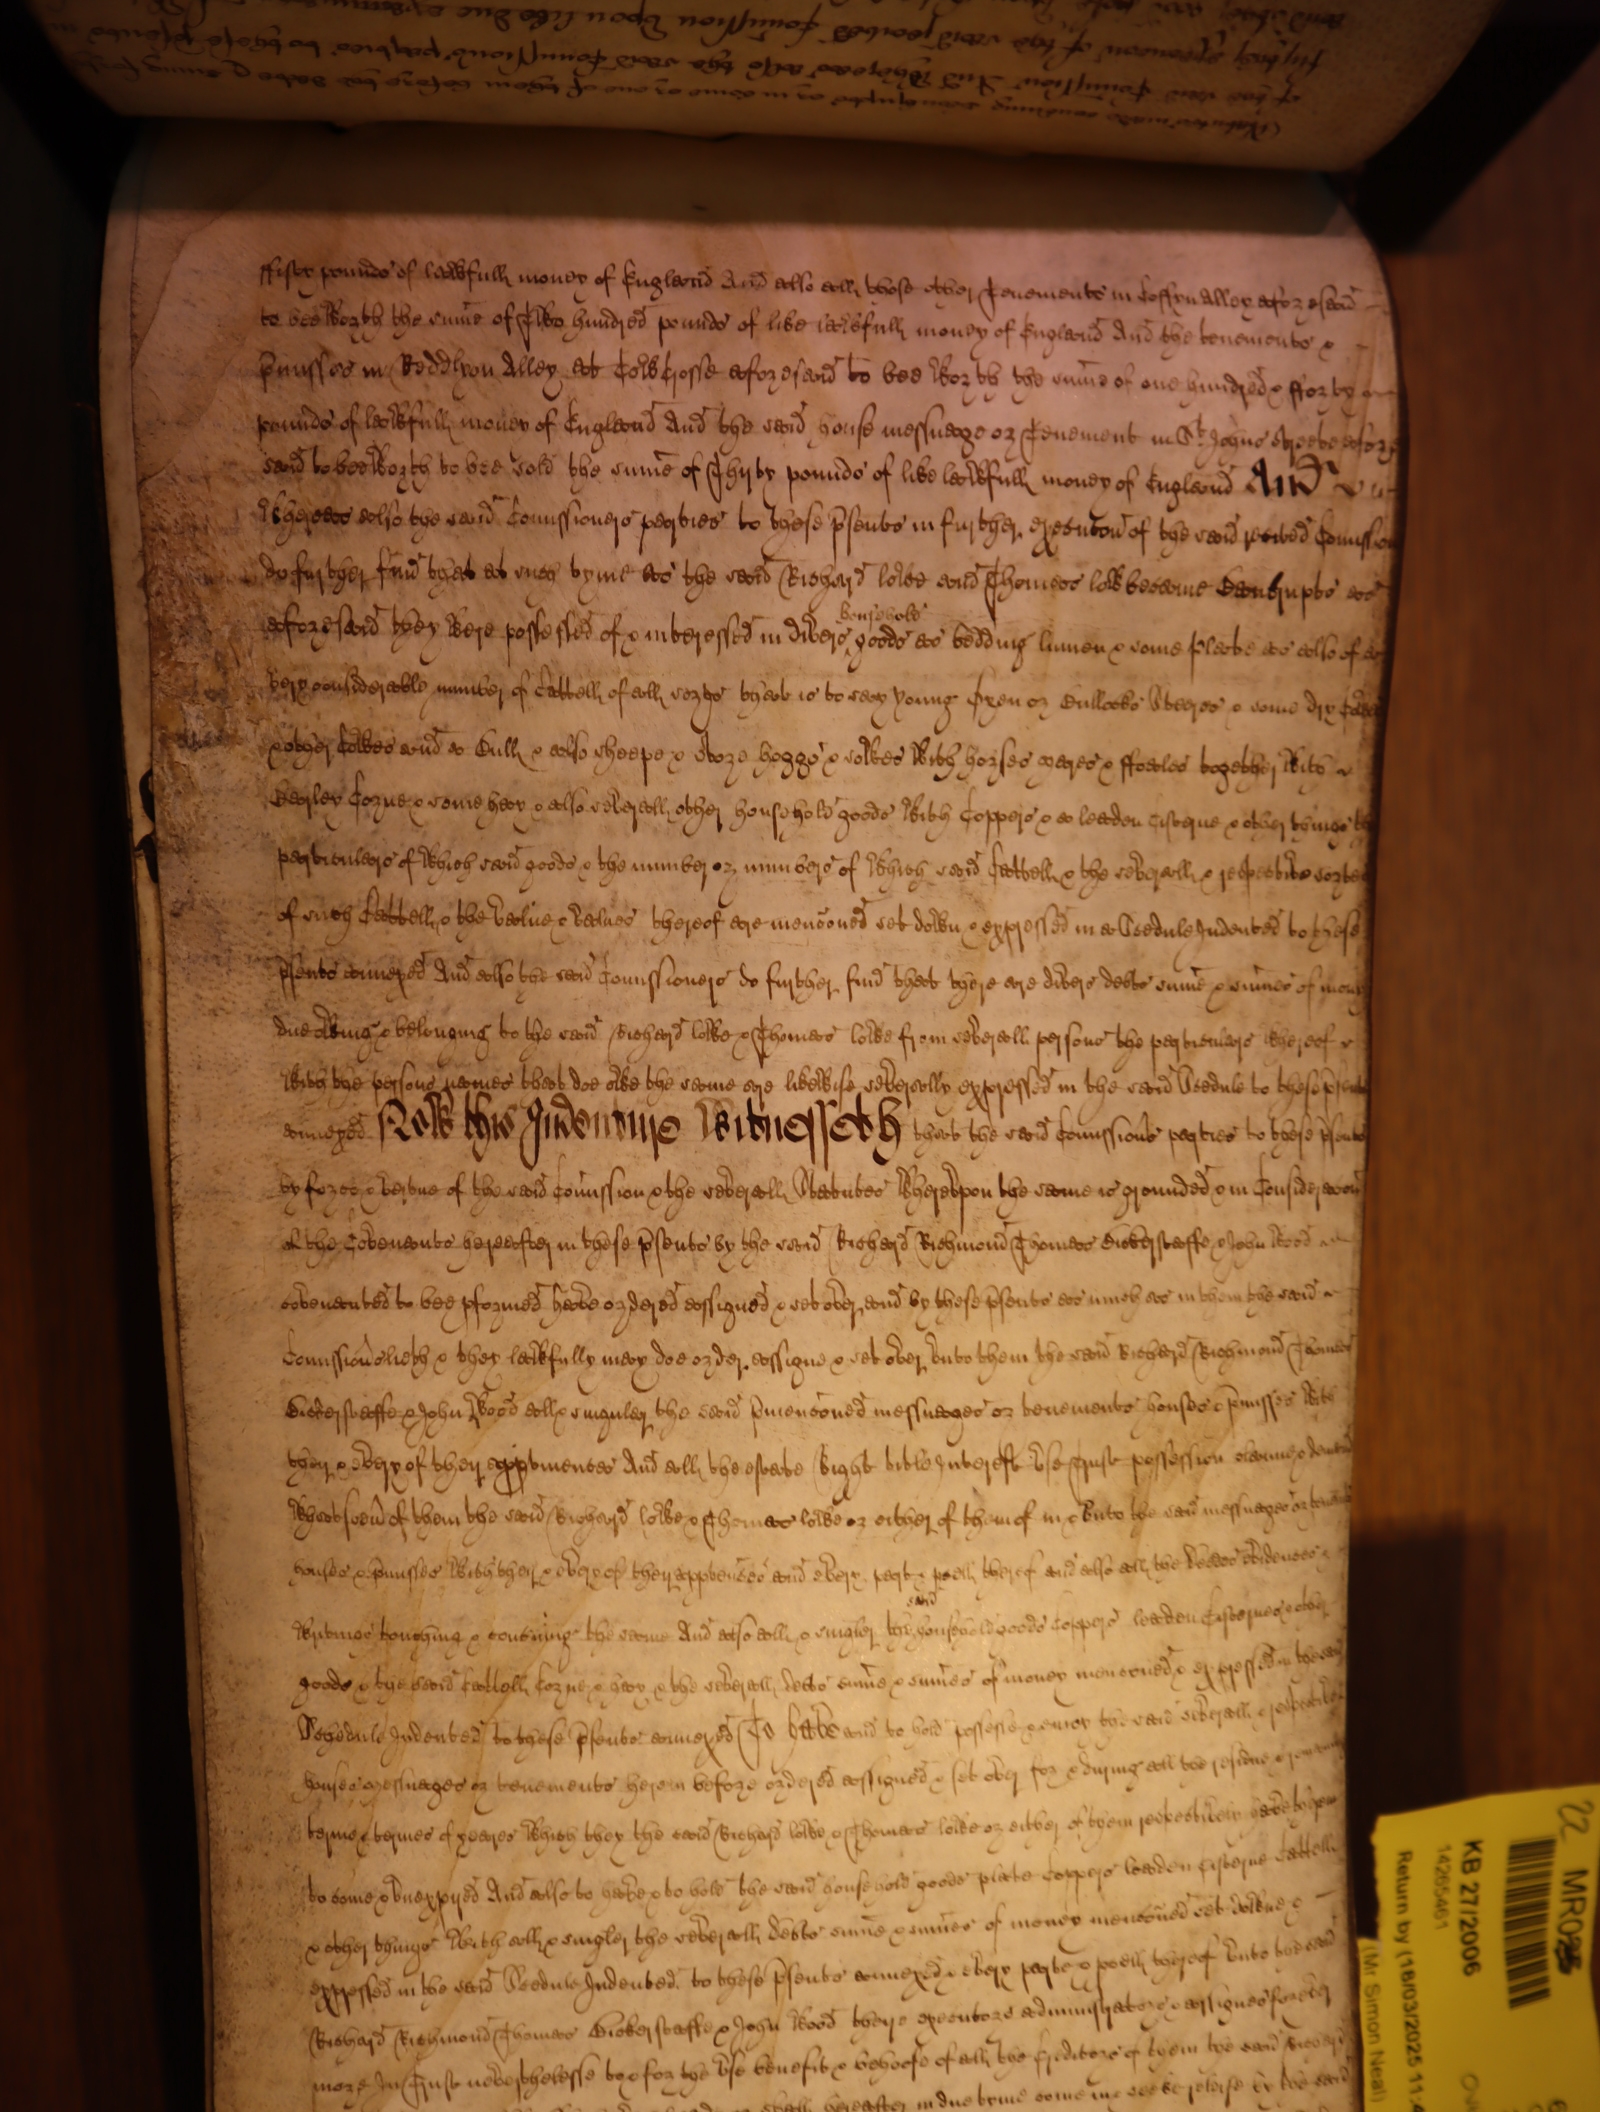 ffifty pounds of lawfull money of England And also all those other Tenements in Coffyn Alley aforesaid
to bee Worth the sume of Two hundred pounds of like lawfull money of England And the tenements &
pmisses in Redd lyon Alley at CowCrosse aforesaid to bee Worth the sume of one hundred & fforty
pounds of lawfull money of England And the said house messuage or Tenement in St Johns streete afore
said to bee Worth to bee sold the sume of Thirty pounds of like lawfull money of England And
Whereas also the said Comissioners parties to these psents in further execucon of the said recited Comission
do further find that at such tyme as the said Richard lowe and Thomas lowe became Bankrupts as
aforesaid they Were possessed of & interessed in divers household goods as bedding linnen & some Plate as also of a
very considerable number of Cattell of all sorts that is to say young Oxen or Bullocks Steeres & some dry Cowes
& other Cowes and a Bull & also sheepe & store hoggs & sowes With horses mares & ffoales together With
Barley Corne & some hay & also severall other household goods With Coppers & a leaden cisterne & other things the
particulars of Which said goods & the number or numbers of Which said Cattell & the severall & respective sortes
of such Cattell & the value & values thereof are menconed set down & expressed in a Scedule Indented to these
psents annexed And also the said Comissioners do further find that there are divers debts sume & sumes of money
due oweing & belonging to the said Richard lowe & Thomas lowe from severall persons the particulars Whereof
With the persons names that doe owe the same are likewise severally expressed in the said Scedule to these psents
annexed Now this Indenture Witnesseth that the said Comissiors parties to these psents
by force & vertue of the said Comission & the severall Statutes Whereupon the same is grounded & in Consideracon
of the Covenants hereafter in these psents by the said Richard Richmond Thomas Bickerstaffe & John Wood
covenanted to bee pformed have ordered assigned & set over and by these psents as much as in them the said
Comissiors lieth & they lawfully may doe order assigne & set over unto them the said Richard Richmond Thomas
Bickerstaffe & John Wood all & singuler the said pmenconed messuages or tenements houses & pmisses With
their & every of their apptinences And all the estate Right title Interest use Trust possession claime & demand
Whatsoevr of them the said Richard lowe & Thomas lowe or either of them of in & unto the said messuages or tenements
houses & pmisses With their & every of their apptences and every part & pcell thereof and also all the deedes evidences
Writings touching & concning the same And also all & singler the said household goods Coppers leaden Cisternes & other
goods & the said Cattell Corne & hay & the severall debts sume & sumes of money menconed & expressed in the said
Schedule Indented to these psents annexed To have and to hold possesse & enioy the said severall & respective
houses messuages or tenements herein before ordered assigned & set over for & during all the residue &
terme & termes of yeares Which they the said Richard lowe & Thomas lowe or either of them respectively have therein
to come & unexpired And also to have & to hold the said household goods plate Coppers leaden Cisterne Cattell
& other things With all & singler the severall debts sume & sumes of money menconed set downe &
expressed in the said Scedule Indented to these psents annexed & every parte & pcell thereof unto the said
Richard Richmond Thomas Bickerstaffe & John Wood theire executors administrators & assignes forever
more In Trust neverthelesse to & for the use benefit & behoofe of all the Creditors of them the said Richard
shall hereafter in due tyme come in & seeke releise by the said
MR025
KB 27/2006
14265461
Return by (18/03/2025 11:4
(Mr Simon Neal)